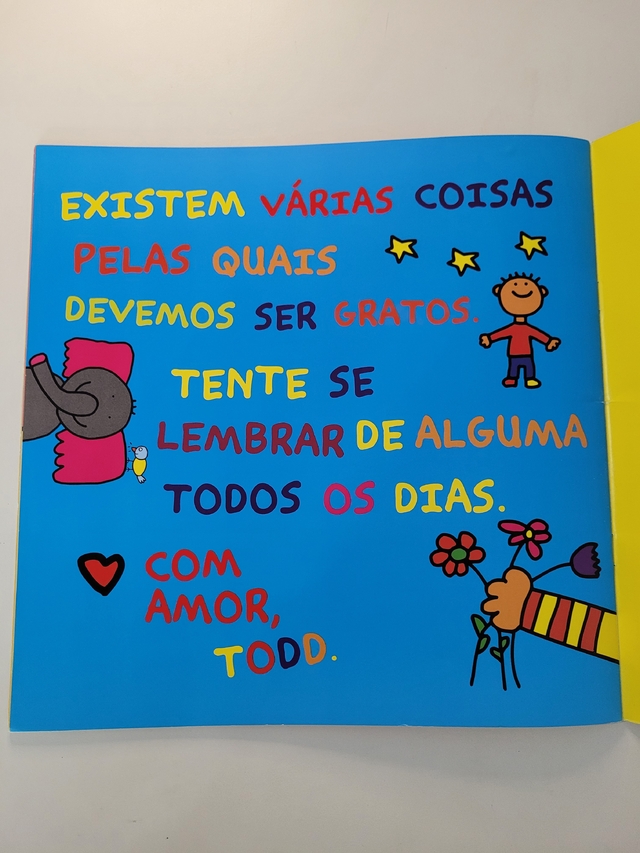 EXISTEM VÁRIAS COISAS
PELAS QUAIS
DEVEMOS SER GRATOS.
TENTE SE
LEMBRAR DE ALGUMA
TODOS OS DIAS.
COM
AMOR,
TODD.